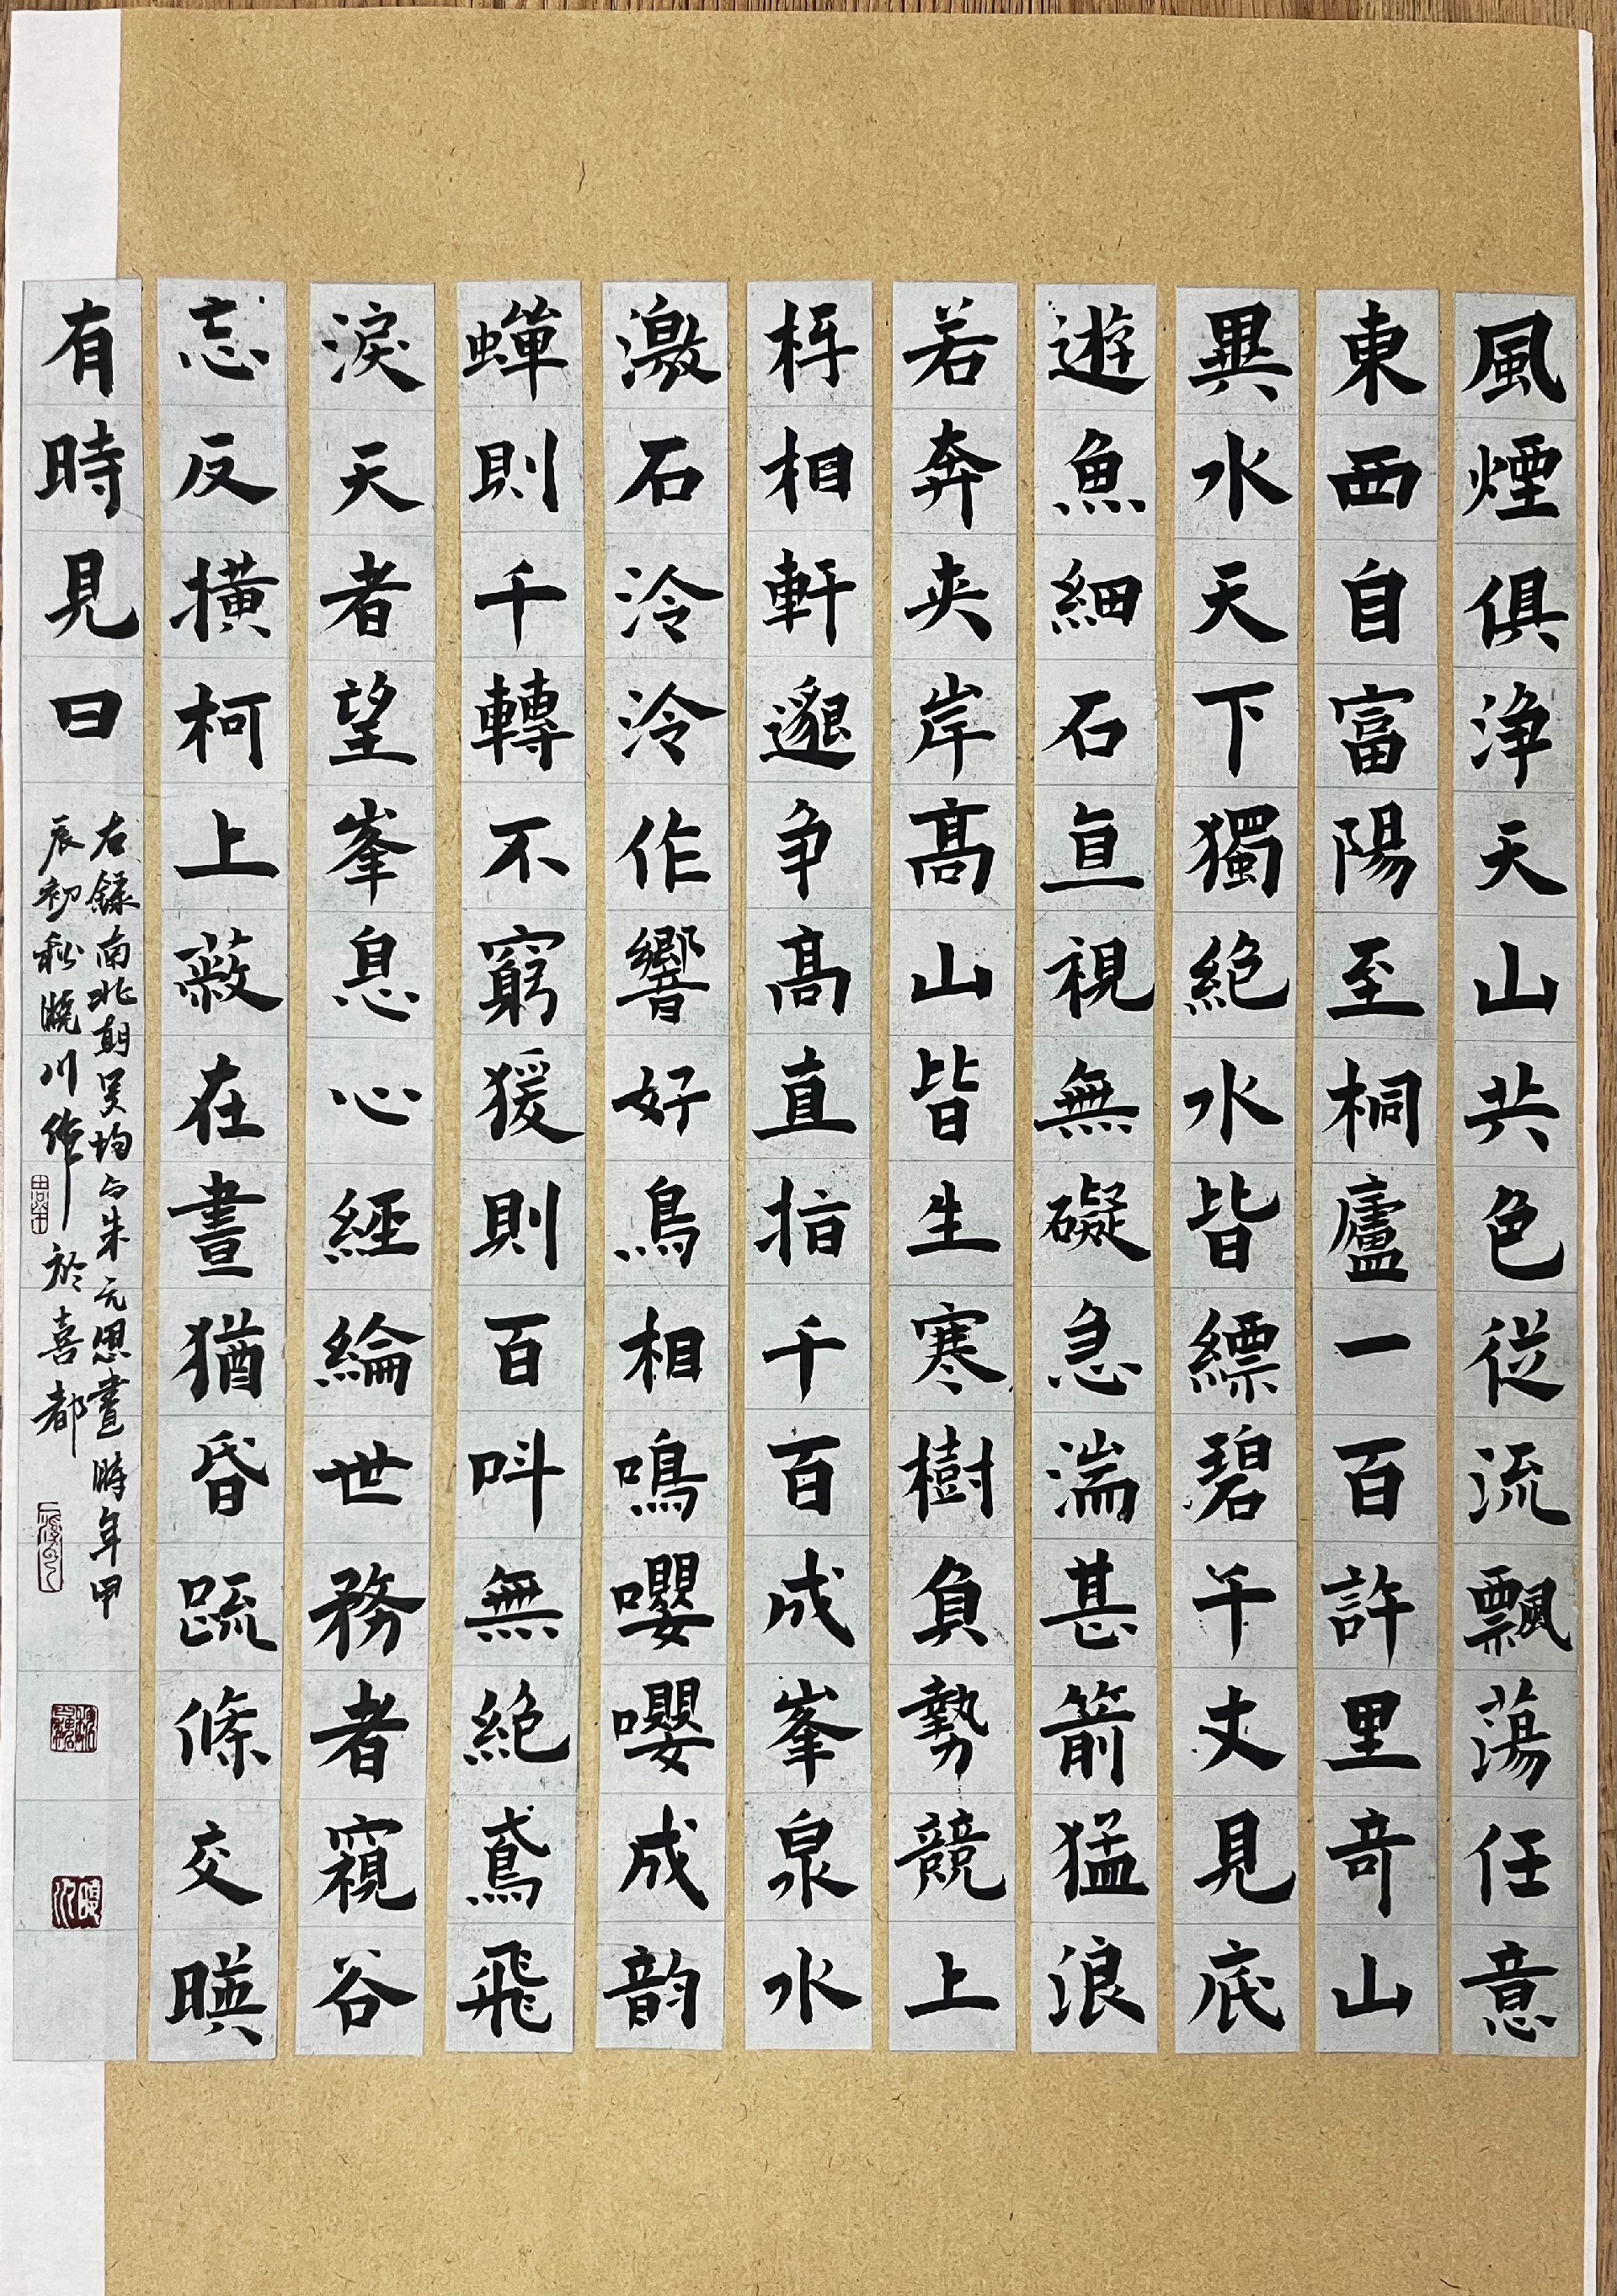 風煙俱浄天山共色從流飄蕩任意
東西自富陽至桐廬一百許里奇山
異水天下獨絕水皆縹碧千丈見底
遊魚細石直視無礙急湍甚箭猛浪
若奔夾岸高山皆生寒樹負勢競上
枑相軒邈争高直指千百成峯泉水
激石泠泠作響好鳥相鳴嚶嚶成韵
蟬則千轉不窮猨則百叫無絕鳶飛
淚天者望峯息心經綸世務者窺谷
忘反橫柯上蔽在晝猶昏疏條交暎
有時見日
右錄南北朝吴均与朱元思書時年甲
辰初秋曉川作於喜都